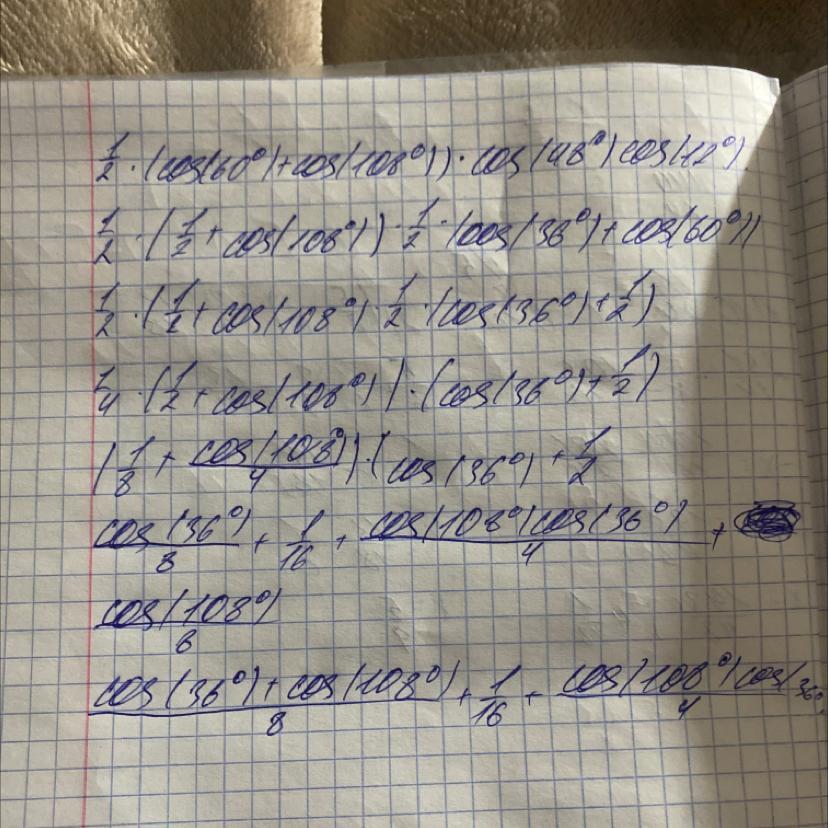 1/2 · (cos(60°)+cos(108°)) · cos(48°) cos(12°)
1/2 · (1/2 + cos(108°)) · 1/2 · (cos(36°) + cos(60°))
1/2 · (1/2 + cos(108°) 1/2 · (cos(36°) + 1/2)
1/4 · (1/2 + cos(108°)) · (cos(36°) + 1/2)
(1/8 + cos(108°)/4) · (cos(36°) + 1/2
cos(36°)/8 + 1/16 + cos(108°)cos(36°)/4 +
cos(108°)/8
cos(36°)+cos(108°)/8 + 1/16 + cos(108°)cos(36°)/4